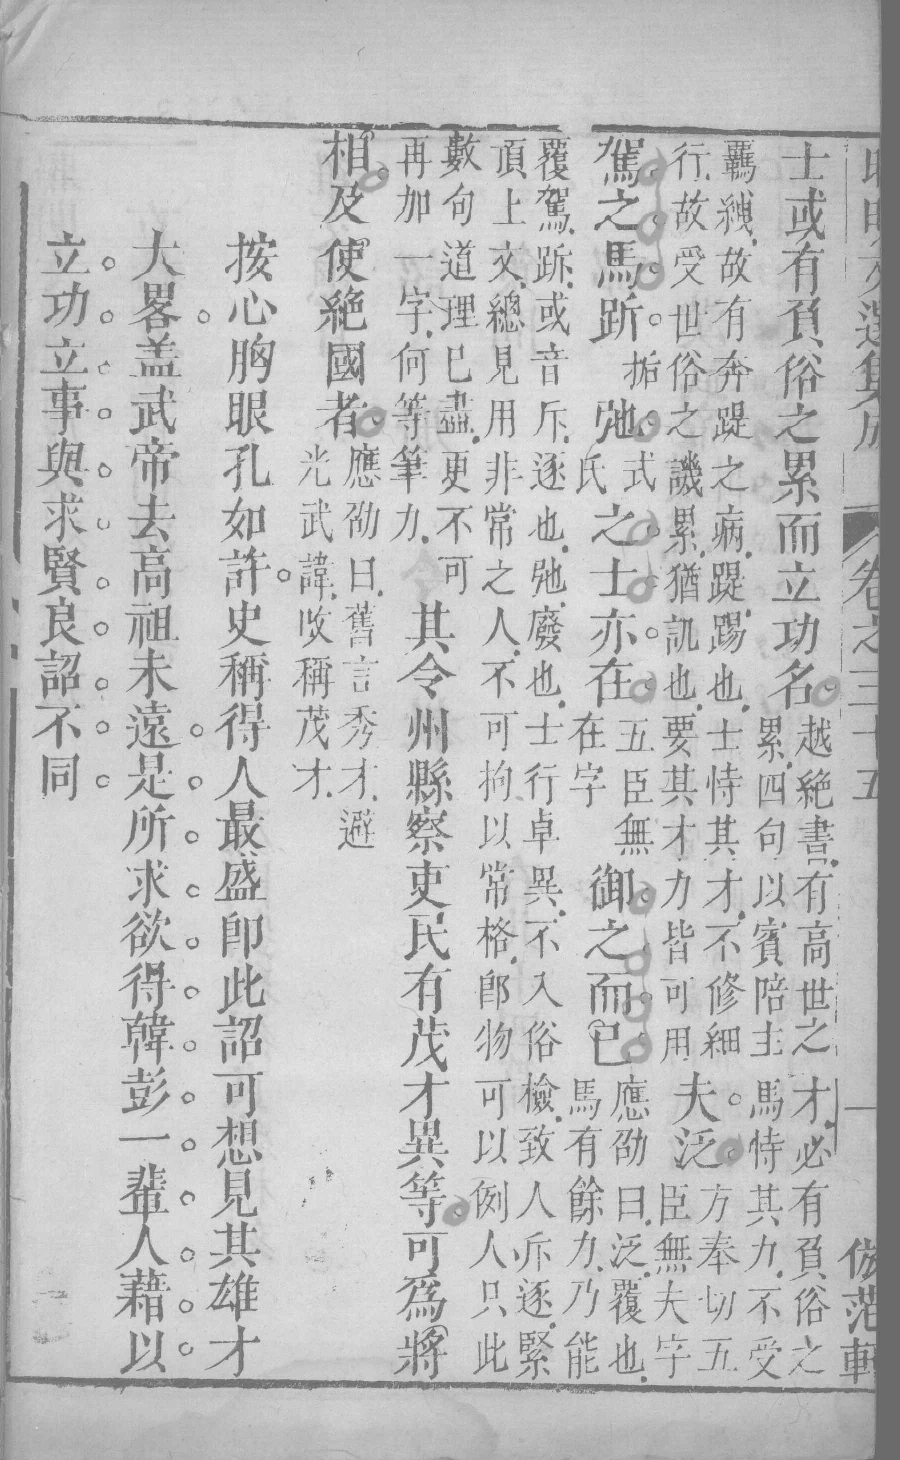 昭明文選集成 卷之三十五 一
士或有負俗之累而立功名越絕書有高世之才必有負俗之
累四句以賓陪主馬恃其力不受
羈絏故有奔踶之病踶踢也士恃其才不修細
行故受世俗之譏累猶訊也要其才力皆可用
夫泛方奉切五
臣無夫字
駕之馬跅拓弛式
氏
之士亦在五臣無
在字
御之而已應劭曰泛覆也
馬有餘力乃能
覆駕跅或音斥逐也弛廢也士行卓異不入俗檢致人斥逐緊
頂上文總見用非常之人不可拘以常格即物可以例人只此
數句道理已盡更不可
再加一字何等筆力
其令州縣察吏民有茂才異等可為將
相及使絕國者應劭曰舊言秀才避
光武諱改稱茂才
按心胸眼孔如許史稱得人最盛即此詔可想見其雄才
大畧盖武帝去高祖未遠是所求欲得韓彭一輩人藉以
立功立事與求賢良詔不同